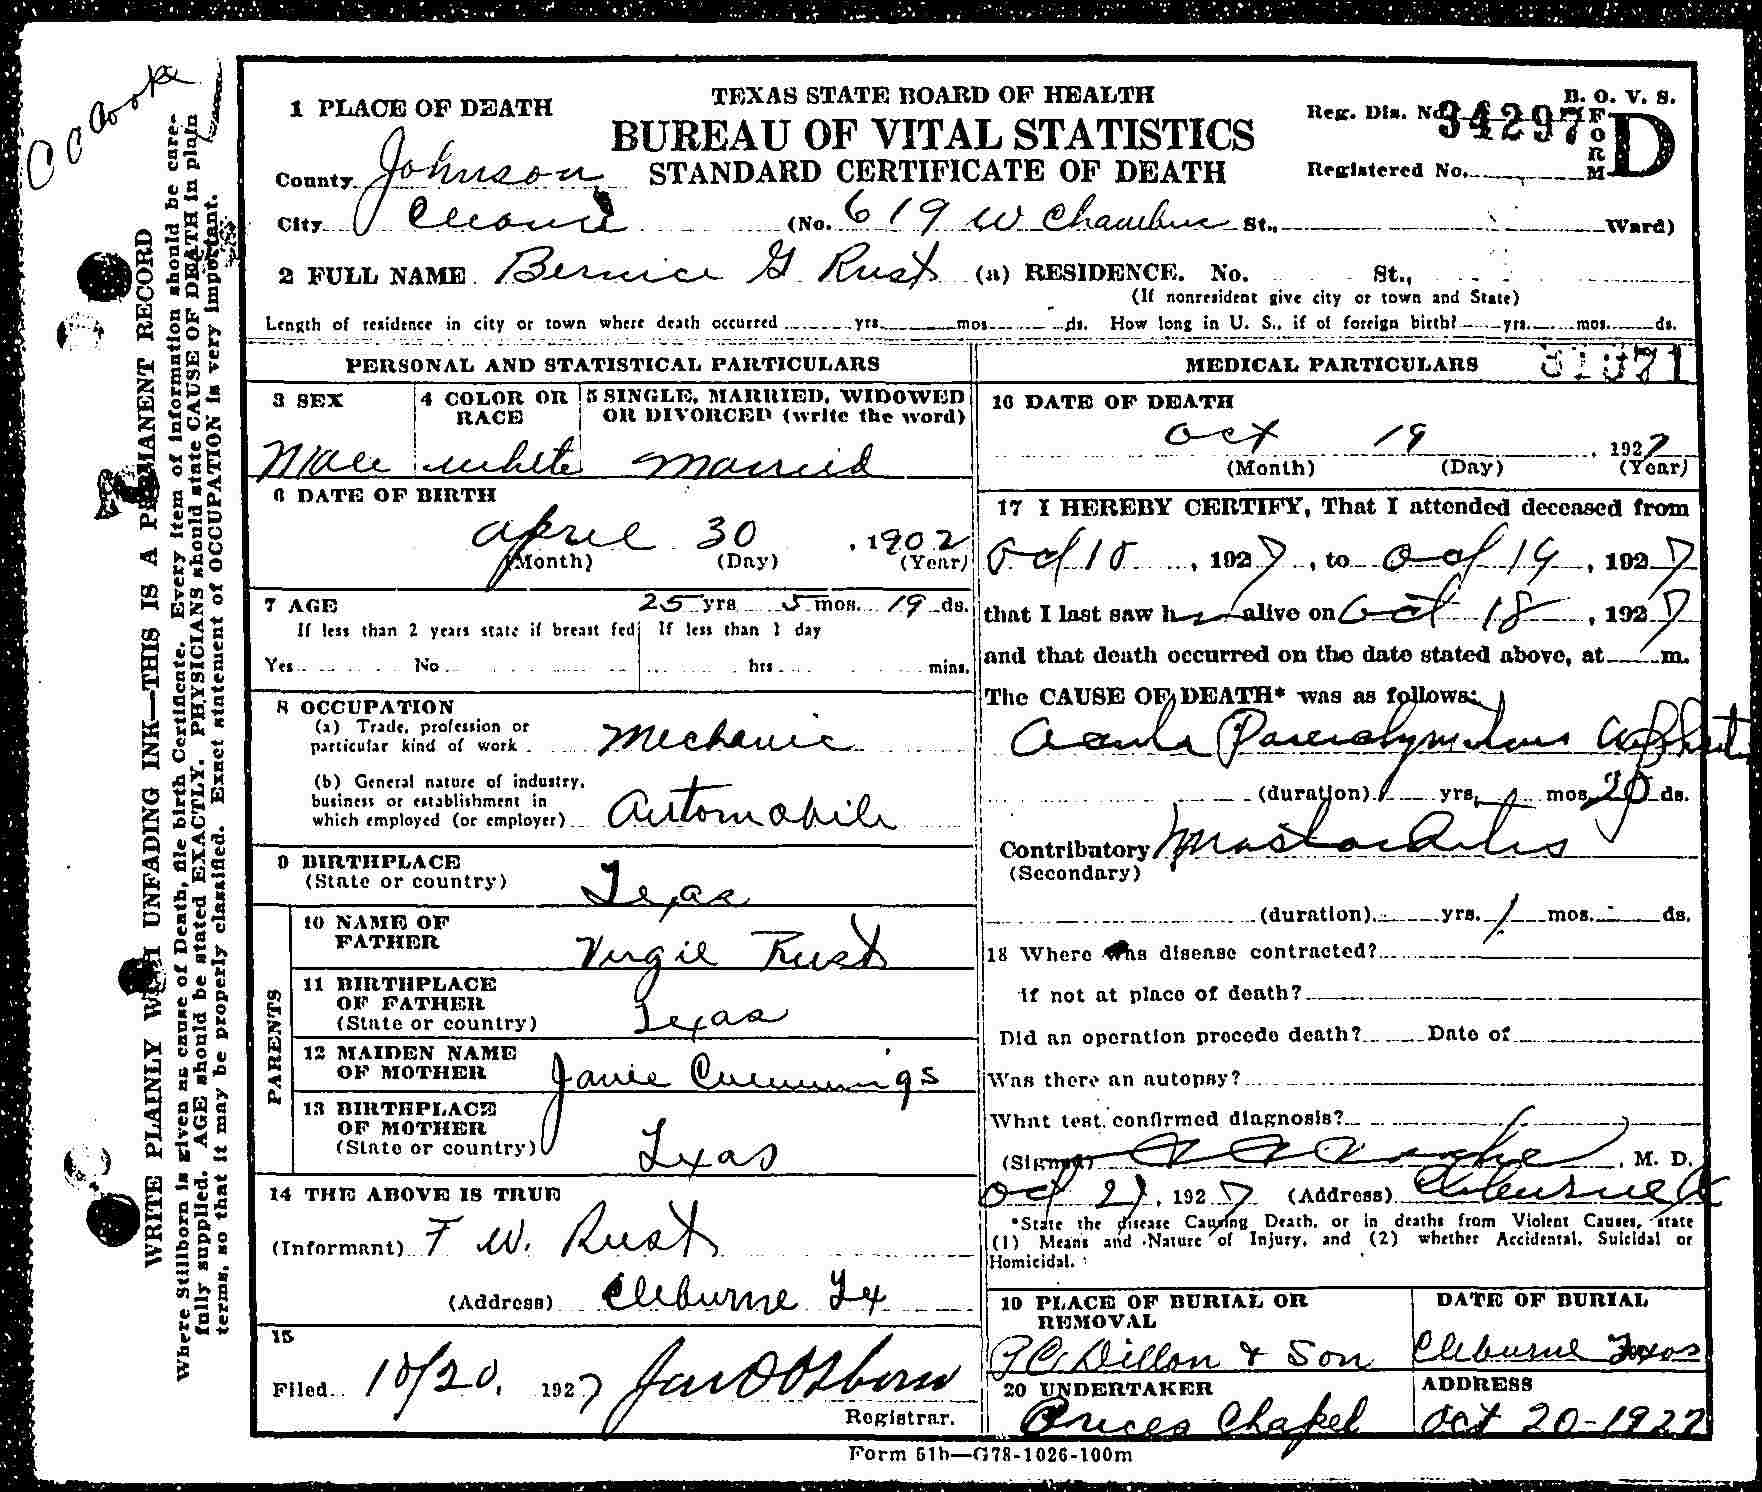 C C Cooke
TEXAS STATE BOARD OF HEALTH
B. O. V. S.
1 PLACE OF DEATH
BUREAU OF VITAL STATISTICS
Reg. Dis. No. 34297
FORM D
County Johnson
STANDARD CERTIFICATE OF DEATH
Registered No.
City (No. 619 W Chambers St., Ward)
2 FULL NAME Bernice G Rust (a) RESIDENCE. No. St.,
(If nonresident give city or town and State)
Length of residence in city or town where death occurred yrs. mos. ds. How long in U. S., if of foreign birth? yrs. mos. ds.
PERSONAL AND STATISTICAL PARTICULARS
3 SEX 4 COLOR OR RACE 5 SINGLE, MARRIED, WIDOWED OR DIVORCED (write the word)
Male white Married
6 DATE OF BIRTH
April 30, 1902
(Month) (Day) (Year)
7 AGE 25 yrs 5 mos. 19 ds.
If less than 2 years state if breast fed If less than 1 day
Yes No hrs mins.
8 OCCUPATION
(a) Trade, profession or
particular kind of work Mechanic
(b) General nature of industry,
business or establishment in
which employed (or employer) Automobile
9 BIRTHPLACE
(State or country) Texas
PARENTS
10 NAME OF
FATHER Virgil Rust
11 BIRTHPLACE
OF FATHER
(State or country) Texas
12 MAIDEN NAME
OF MOTHER Janie Cummings
13 BIRTHPLACE
OF MOTHER
(State or country) Texas
14 THE ABOVE IS TRUE
(Informant) F W. Rust
(Address) Cleburne Tx
15
Filed 10/20, 1927 Osborn
Registrar.
MEDICAL PARTICULARS
16 DATE OF DEATH
Oct 19, 1927
(Month) (Day) (Year)
17 I HEREBY CERTIFY, That I attended deceased from
Oct 10, 1927, to Oct 19, 1927
that I last saw h alive on Oct 18, 1927
and that death occurred on the date stated above, at m.
The CAUSE OF DEATH* was as follows:
Acute Parenchymatous Nephritis
(duration) yrs. mos. 20 ds.
Contributory Mastoiditis
(Secondary)
(duration) yrs. 1 mos. ds.
18 Where was disease contracted?
if not at place of death?
Did an operation precede death? Date of
Was there an autopsy?
What test confirmed diagnosis?
(Signed) M. D.
Oct 21, 1927 (Address) Cleburne
*State the disease Causing Death, or in deaths from Violent Causes, state
(1) Means and Nature of Injury, and (2) whether Accidental, Suicidal or
Homicidal.
19 PLACE OF BURIAL OR REMOVAL DATE OF BURIAL
Dillon & Son Cleburne Texas
20 UNDERTAKER ADDRESS
Prices Chapel Oct 20-1927
Form 51b—G78-1026-100m
WRITE PLAINLY WITH UNFADING INK—THIS IS A PERMANENT RECORD
Where Stillborn is given as cause of Death, file birth Certificate. Every item of information should be care-
fully supplied. AGE should be stated EXACTLY. PHYSICIANS should state CAUSE OF DEATH in plain
terms, so that it may be properly classified. Exact statement of OCCUPATION is very important.